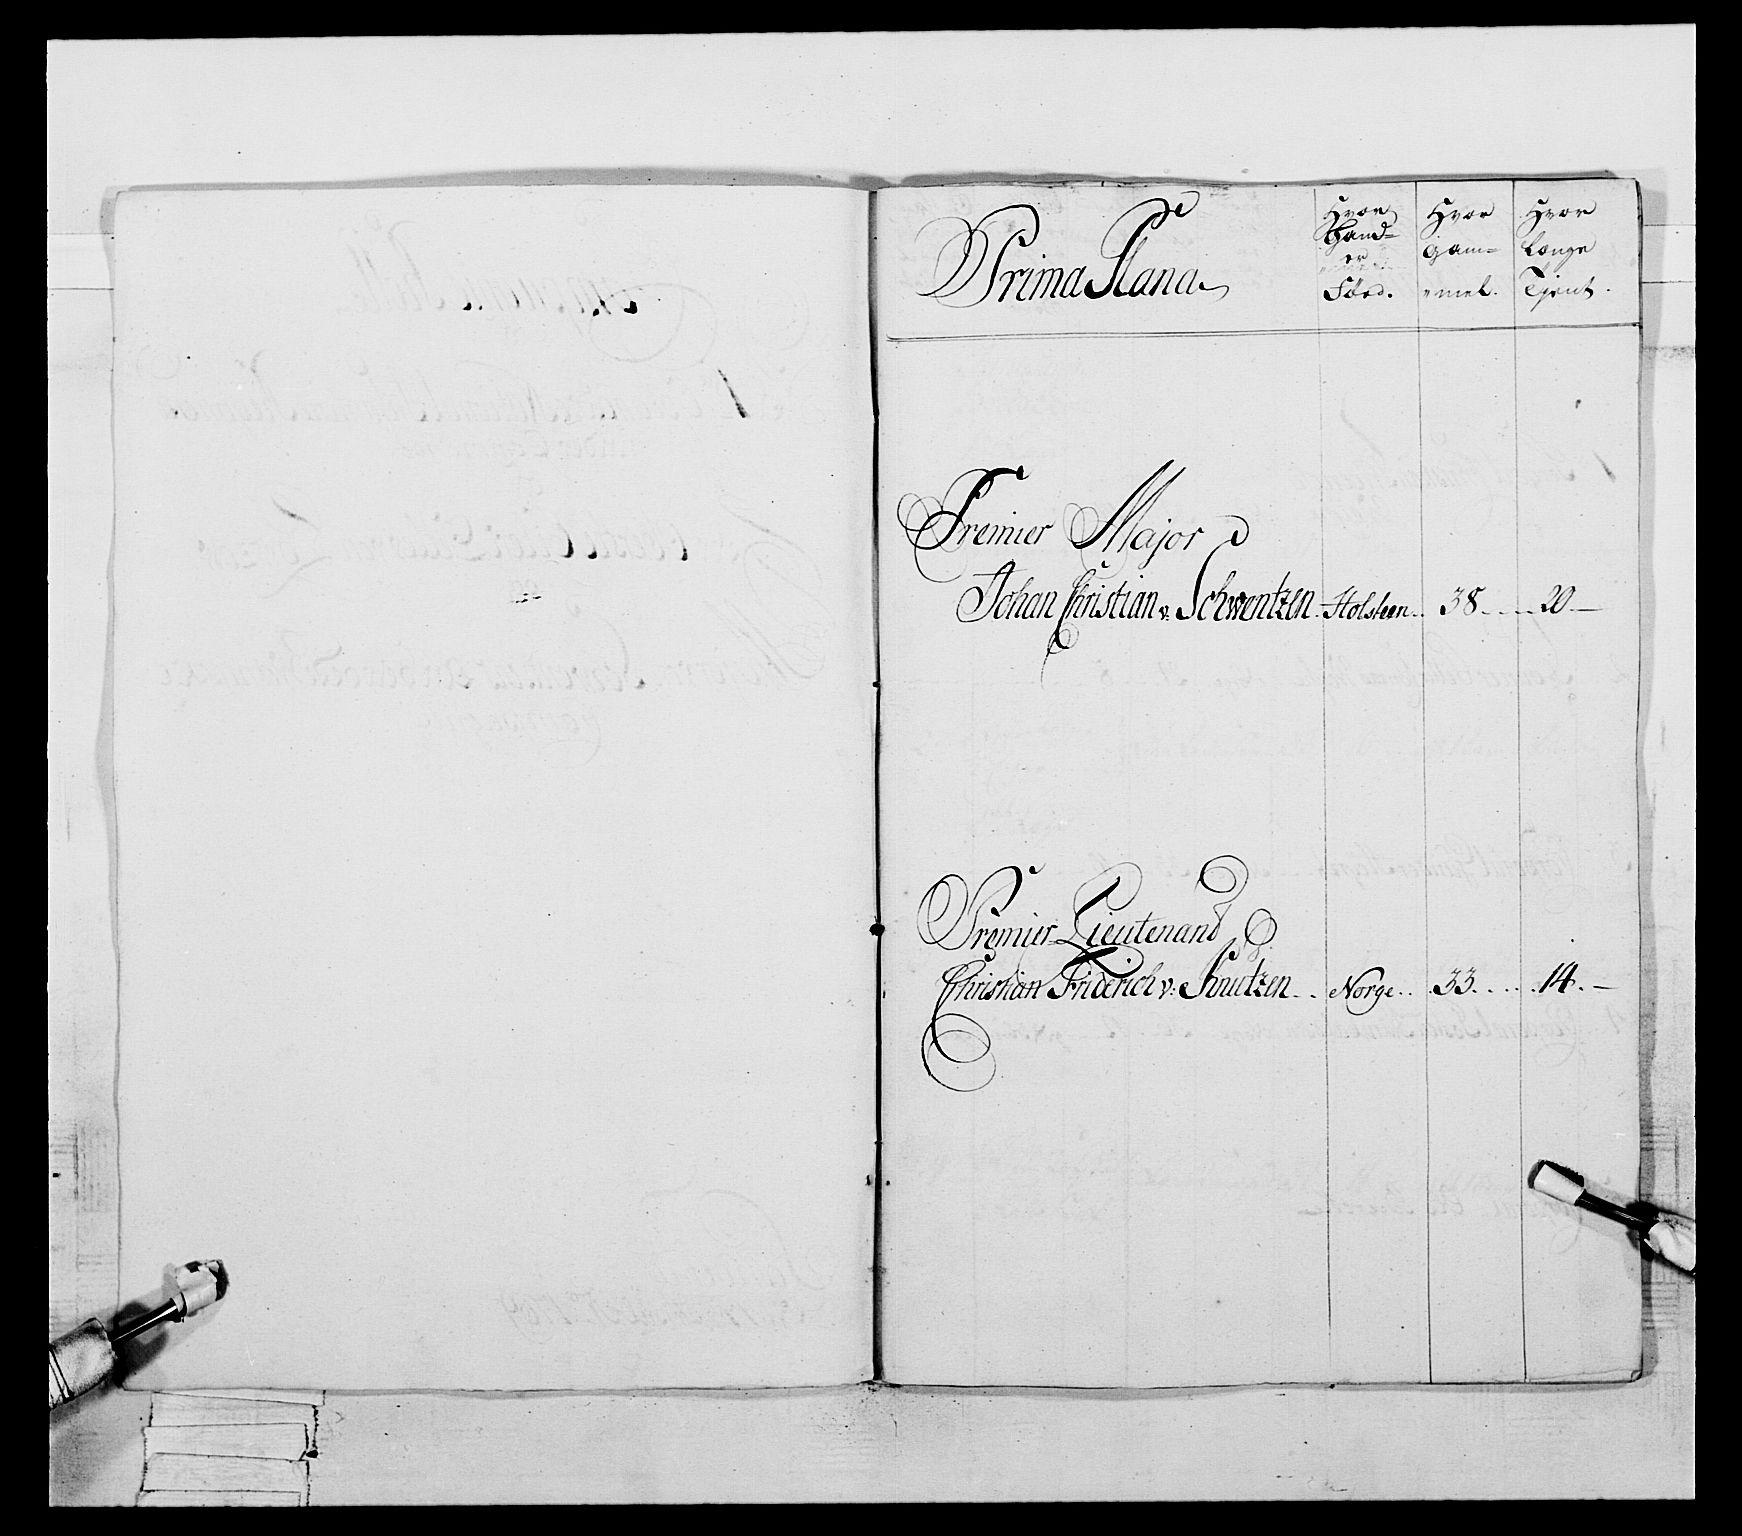 Prima Plana
Hvor Hand er Föed.
Hvor gam= mel.
Hvor længe Tjent.
Premier Major
Johan Christian v: Schwentzen. Holsteen. 38. 20.
Premier Lieutenand
Christian Friderich v: Knutzen. Norge. 33. 14.